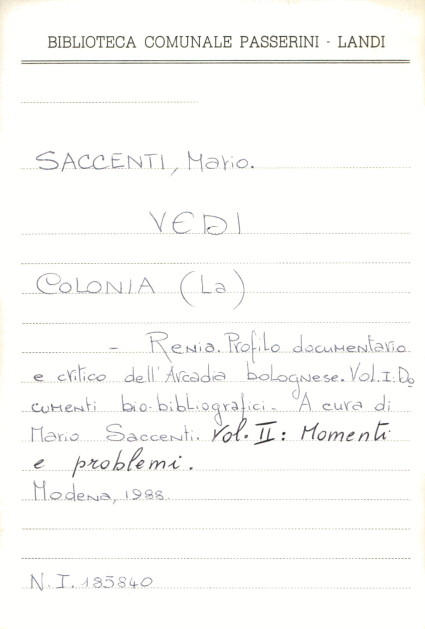 BIBLIOTECA COMUNALE PASSERINI - LANDI
SACCENTI, Mario.
VEDI
COLONIA (La)
- Renia. Profilo documentario
e critico dell'Arcadia bolognese. Vol. I: Do
cumenti bio-bibliografici. A cura di
Mario Saccenti. Vol. II: Momenti
e problemi.
Modena, 1988.
N.I. 135840